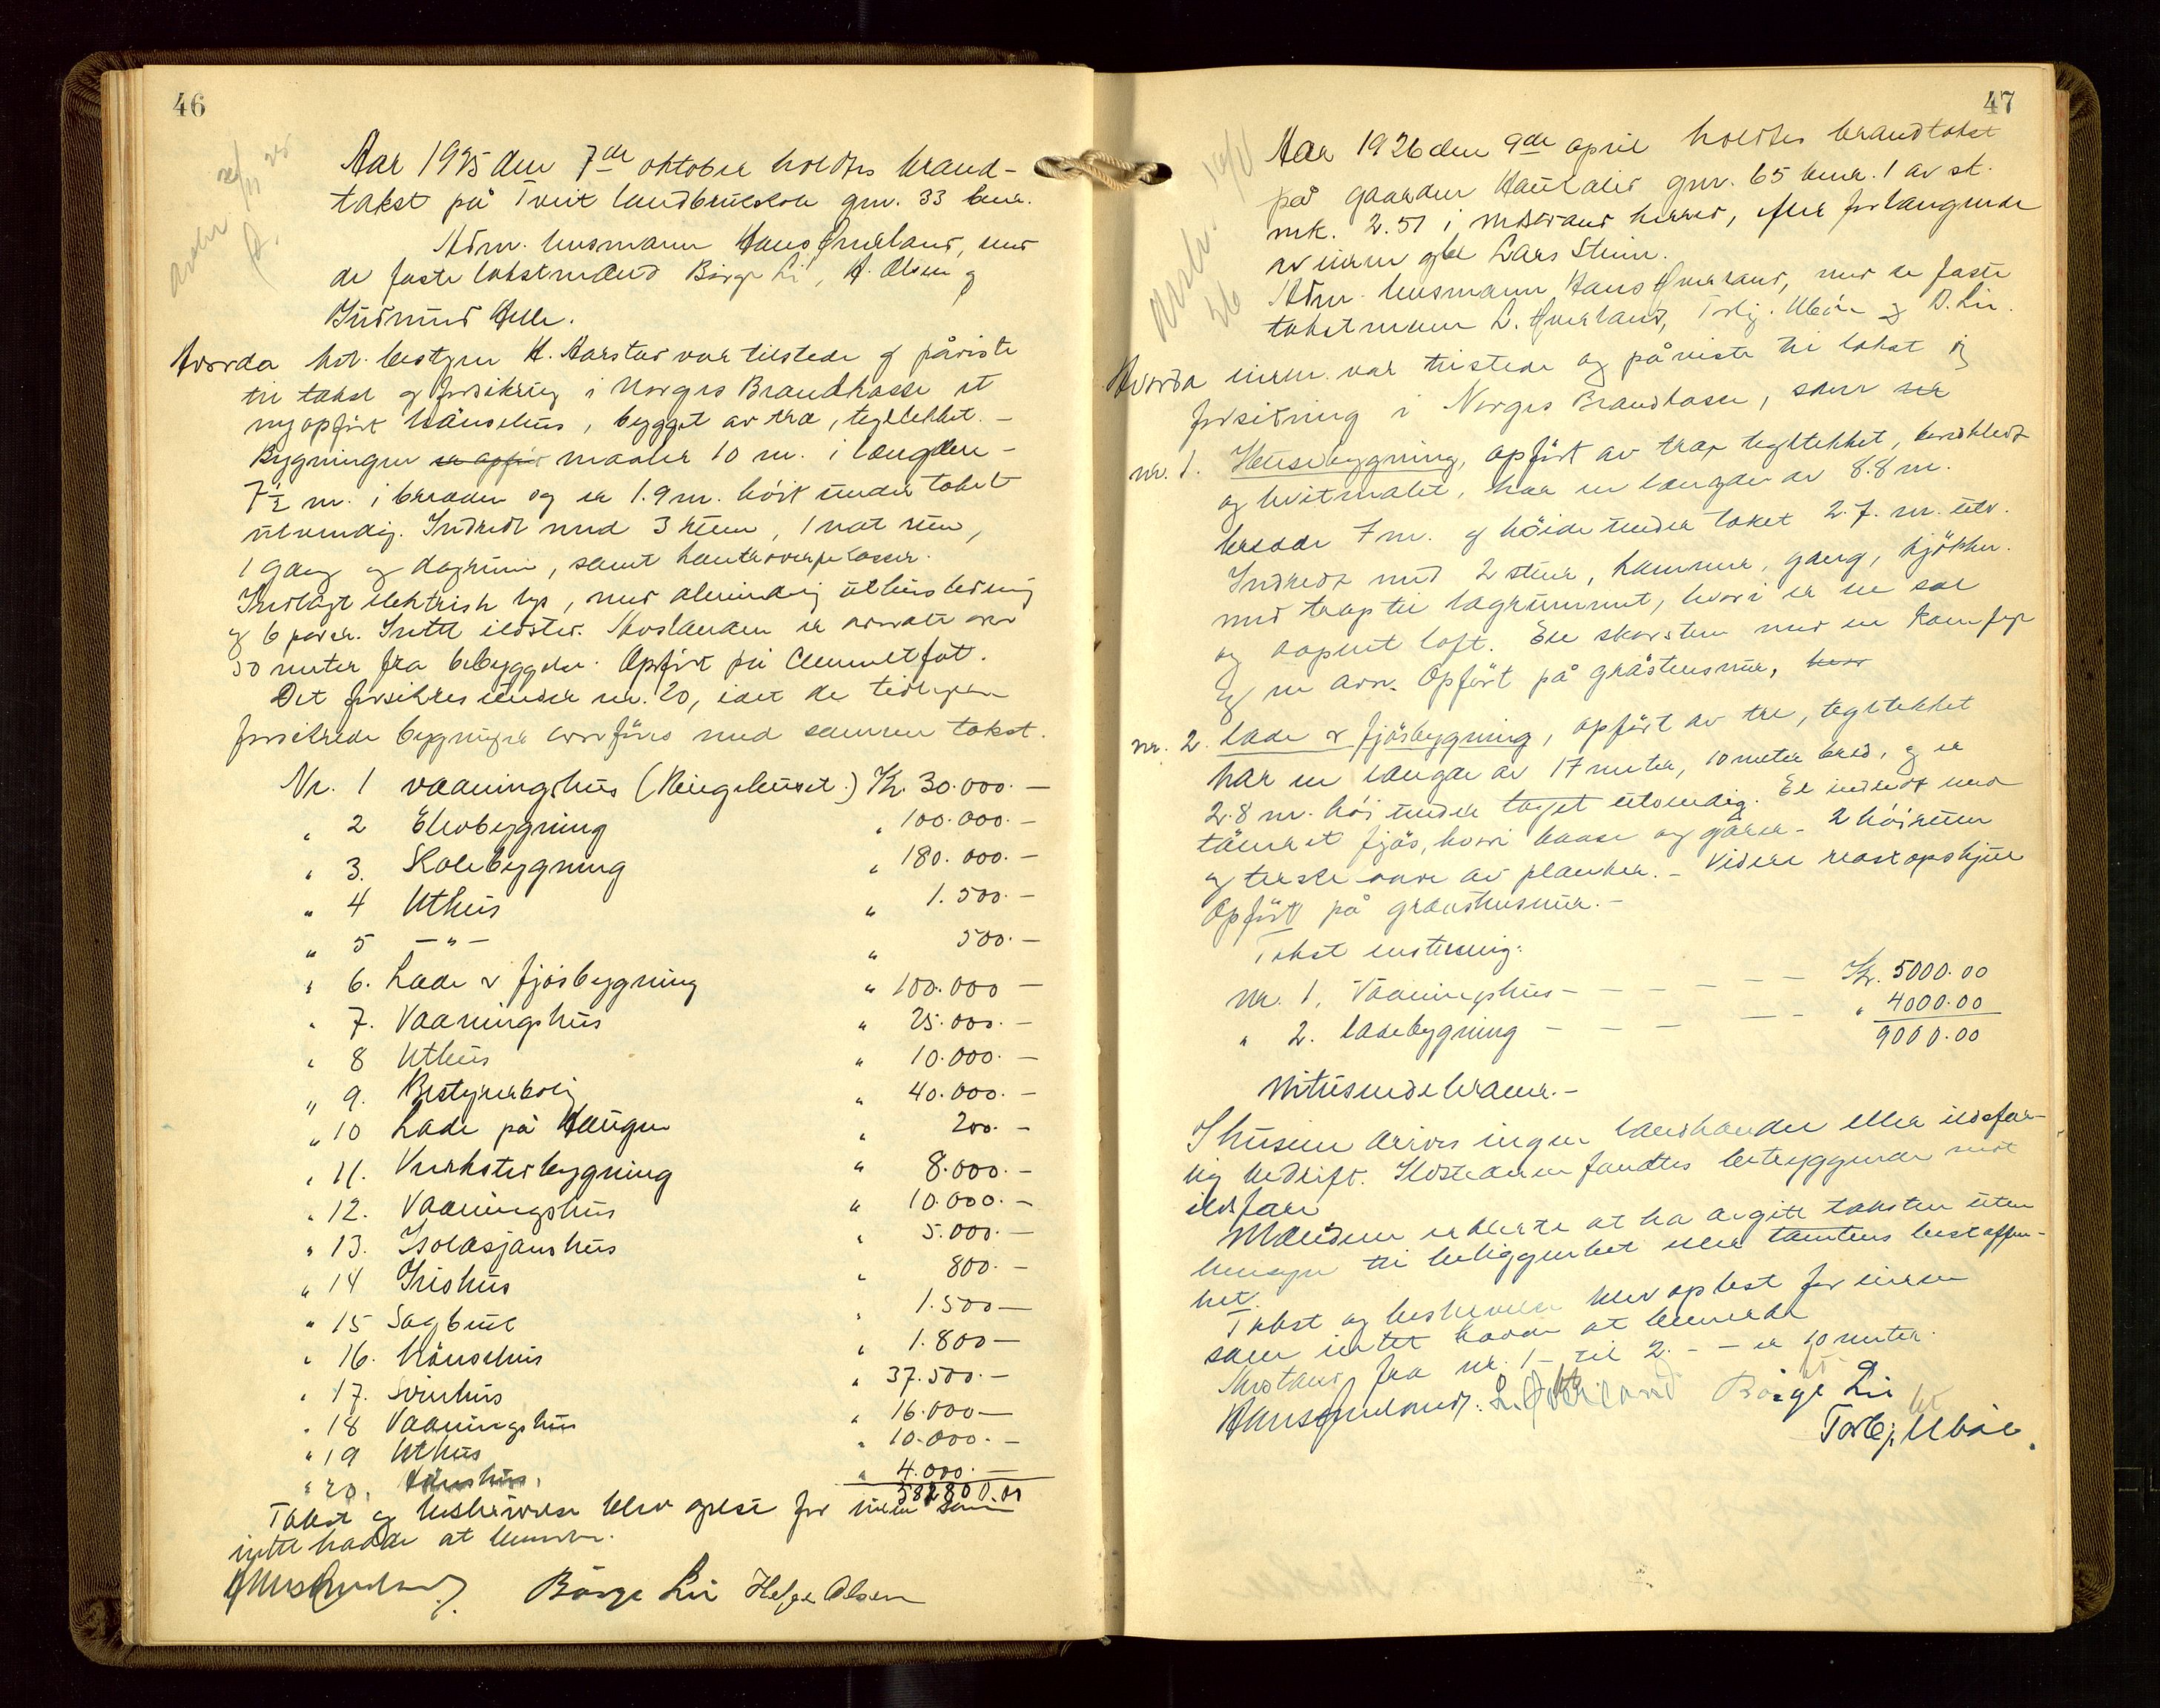 46
Aar 1925 den 7de oktober holdtes brand-
takst på Tveit landbrukskole gnr. 33 bnr.
Adm. lensmann Hans Øverland, med
de faste takstmænd Børge Li, H. Olsen og
Gudmund Helle.
Hvorda hr. bestyrer H. Aarstad var tilstede og påviste
til takst og forsikring i Norges Brandkasse et
nyopført hønsehus, bygget av træ, teglteket. –
Bygningen er opført maaler 10 m. i længden –
7½ m. i breden og er 1.9 m. høit under taket
utvendig. Indredt med 3 rum, 1 mat rum,
1 gang og dagrum, samt
Indlagt elektrisk lys, med almindelig uthusledning
og 6 Intet ildsted. Avstanden er over
50 meter fra bebyggelse. Opført på Cementfot.
Det forsikres under nr. 20, idet de tidligere
forsikrede bygninger overføres med samme takst.
Nr. 1 vaaningshus ( ) Kr. 30.000. –
" 2 Elevbygning " 100.000. –
" 3. Skolebygning " 180.000. –
" 4 Uthus " 1.500. –
" 5 – " – " 500. –
" 6. Lade & fjøsbygning " 100.000 –
" 7. Vaaningshus " 25.000. –
" 8 Uthus " 10.000. –
" 9. Bestyrerbolig " 40.000. –
" 10 Lade på Haugen " 200. –
" 11. Verkstedbygning " 8.000. –
" 12. Vaaningshus " 10.000. –
" 13. Isolasjonshus " 5.000. –
" 14 Grishus " 800. –
" 15 Sagbruk " 1.500 –
" 16. hönsehus " 1.800 –
" 17. Svinhus " 37.500. –
" 18 Vaaningshus " 16.000 –
" 19 Uthus " 10.000. –
" 20. Hönshus. " 4.000. –
581800.00
Takst og beskrivelse blev oplest for eieren som
intet hadde at bemerke.
Hans Øverland. Börge Lie Helge Olsen
47
Aar 1926 den 9de april holdtes brandtakst
på gaarden gnr. 65 bnr. 1 av sk.
mk. 2.51 i herred, efter forlangende
av eieren Lars Steine.
Adm. lensmann Hans Øverland, med de faste
takstmenn L. Øverland, Torbj. Ubøe og B. Lie.
Hvorda eieren var tilstede og påviste til takst og
forsikring i Norges Brandkasse, som er
nr. 1. Husebygning, opført av træ, teglteket, bordkledt
og hvitmalet, har en længde av 8.8 m.
bredde 7 m. og høide under taket 2.7. m. utv.
Indredt med 2 stuer, kammer, gang, kjøkken.
med trap til lagrummet, hvori er en sal
og aapent loft. En skorsten med en komfyr
og en ovn. Opført på gråstensmur, hvor
nr. 2. Lade & fjøsbygning, opført av tre, teglteket
har en længde av 17 meter, 10 meter bred, og er
2.8 m. høi under taget utvendig. Er indredt med
tømret fjøs, hvori baase og 2 høirum
og treskelaave av planker. – Videre
Opført på graastensmur. –
Takst ansetning:
Nr. 1. Vaaningshus – – – – – – Kr. 5000.00
" 2. Ladebygning – – – – – " 4000.00
9000.00
Nitusendekroner. –
I husene drives ingen landhandel eller ildsfar-
lig bedrift. Ildstedene fandtes betryggende mot
ildsfare
Mændene erklærte at ha avgitt taksten uten
hensyn til beliggenhet eller tomtens beskaffen-
het.
Takst og beskrivelse blev oplest for eieren
som intet hadde at bemerke
Avstand fra nr. 1 – til 2. – – er 10 meter.
Hans Øverland. L. Øverland Börge Lie
Torbj. Uböe.